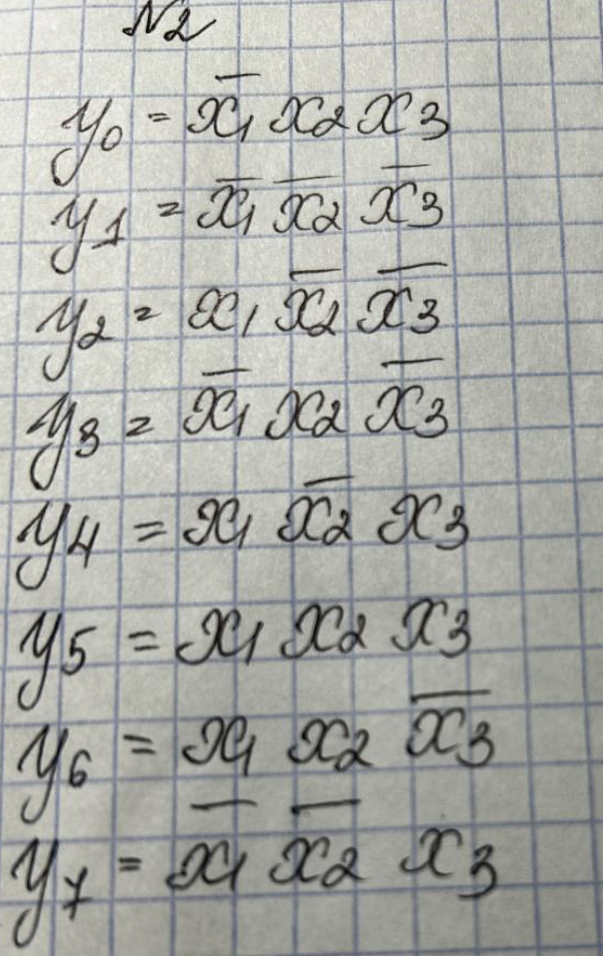 №2
y₀ = x̅₁ x₂ x₃
y₁ = x̅₁ x̅₂ x̅₃
y₂ = x₁ x̅₂ x̅₃
y₃ = x̅₁ x₂ x̅₃
y₄ = x₁ x̅₂ x₃
y₅ = x₁ x₂ x₃
y₆ = x₁ x₂ x̅₃
y₇ = x̅₁ x̅₂ x₃